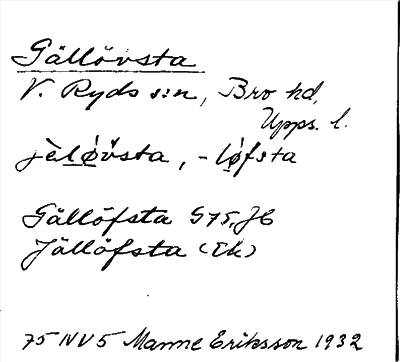 Gällövsta
V. Ryds sn, Bro hd,
Upps. l.
jèlø̀vsta, -lø̀fsta
Gällöfsta G75, JC
Jällöfsta (Ek)
75 NV 5 Manne Eriksson 1932